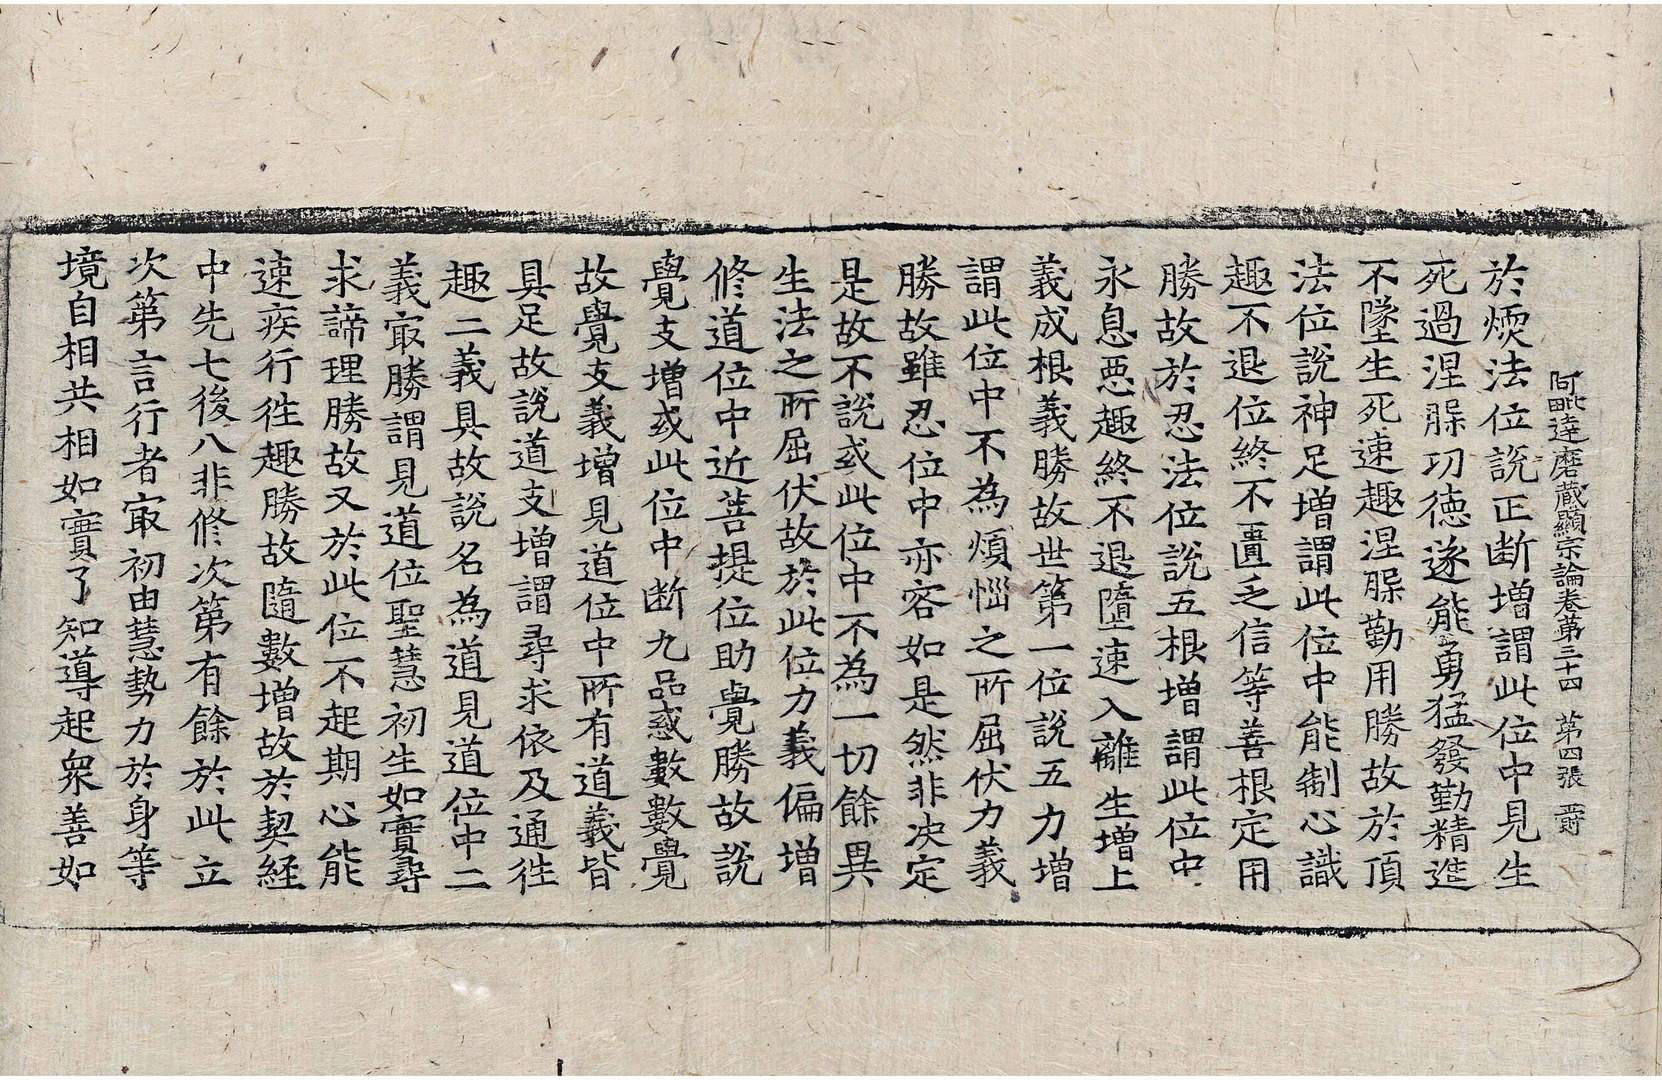 阿毗達磨藏顯宗論卷第三十四　第四張　爵
於煗法位說正断增謂此位中見生
死過涅槃㓛德遂能勇猛發勤精進
不墜生死速趣涅槃勤用勝故於頂
法位說神足增謂此位中能制心識
趣不退位終不匱乏信等善根定用
勝故於忍法位說五根增謂此位中
永息惡趣終不退墮速入離生增上
義成根義勝故世第一位說五力增
謂此位中不為煩惱之所屈伏力義
勝故雖忍位中亦容如是然非决定
是故不說或此位中不為一切餘異
生法之所屈伏故於此位力義偏增
修道位中近菩提位助覺勝故說
覺支增或此位中断九品惑數數覺
故覺支義增見道位中所有道義皆
具足故說道支增謂尋求依及通徃
趣二義具故說名為道見道位中二
義㝡勝謂見道位聖慧初生如實尋
求諦理勝故又於此位不起期心能
速疾行徃趣勝故隨數增故於契經
中先七後八非修次第有餘於此立
次第言行者㝡初由慧勢力於身等
境自相共相如實了知導起衆善如